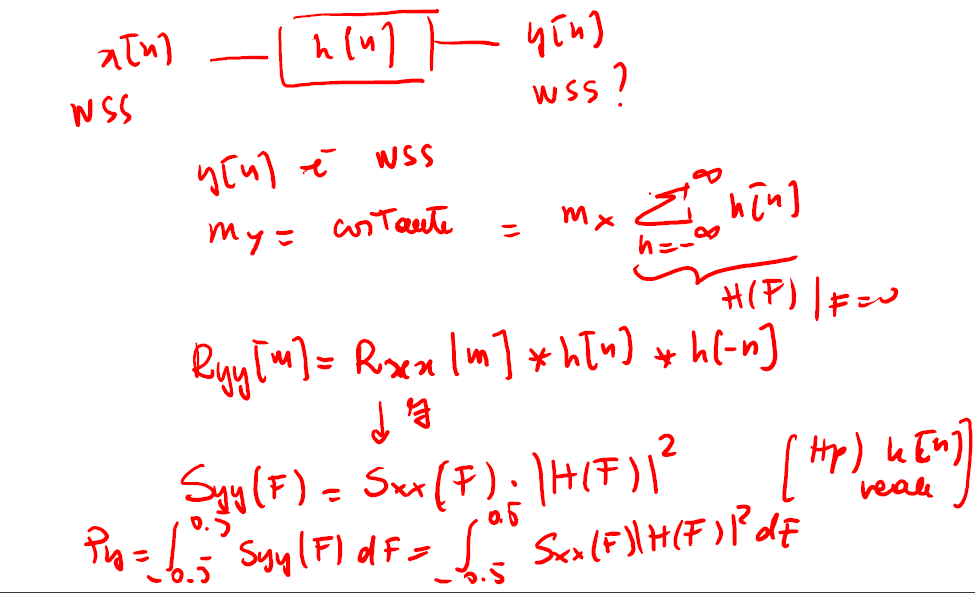 x[n] h[n] y[n]
WSS WSS?
y[n] è WSS
m_y = costante = m_x \sum_{n=-\infty}^{\infty} h[n]
H(F)|_{F=0}
R_{yy}[m] = R_{xx}[m] * h[n] * h[-n]
↓ F
S_{yy}(F) = S_{xx}(F) \cdot |H(F)|^2 [Hp) h[n] reale]
P_y = \int_{-0.5}^{0.5} S_{yy}(F) dF = \int_{-0.5}^{0.5} S_{xx}(F)|H(F)|^2 dF